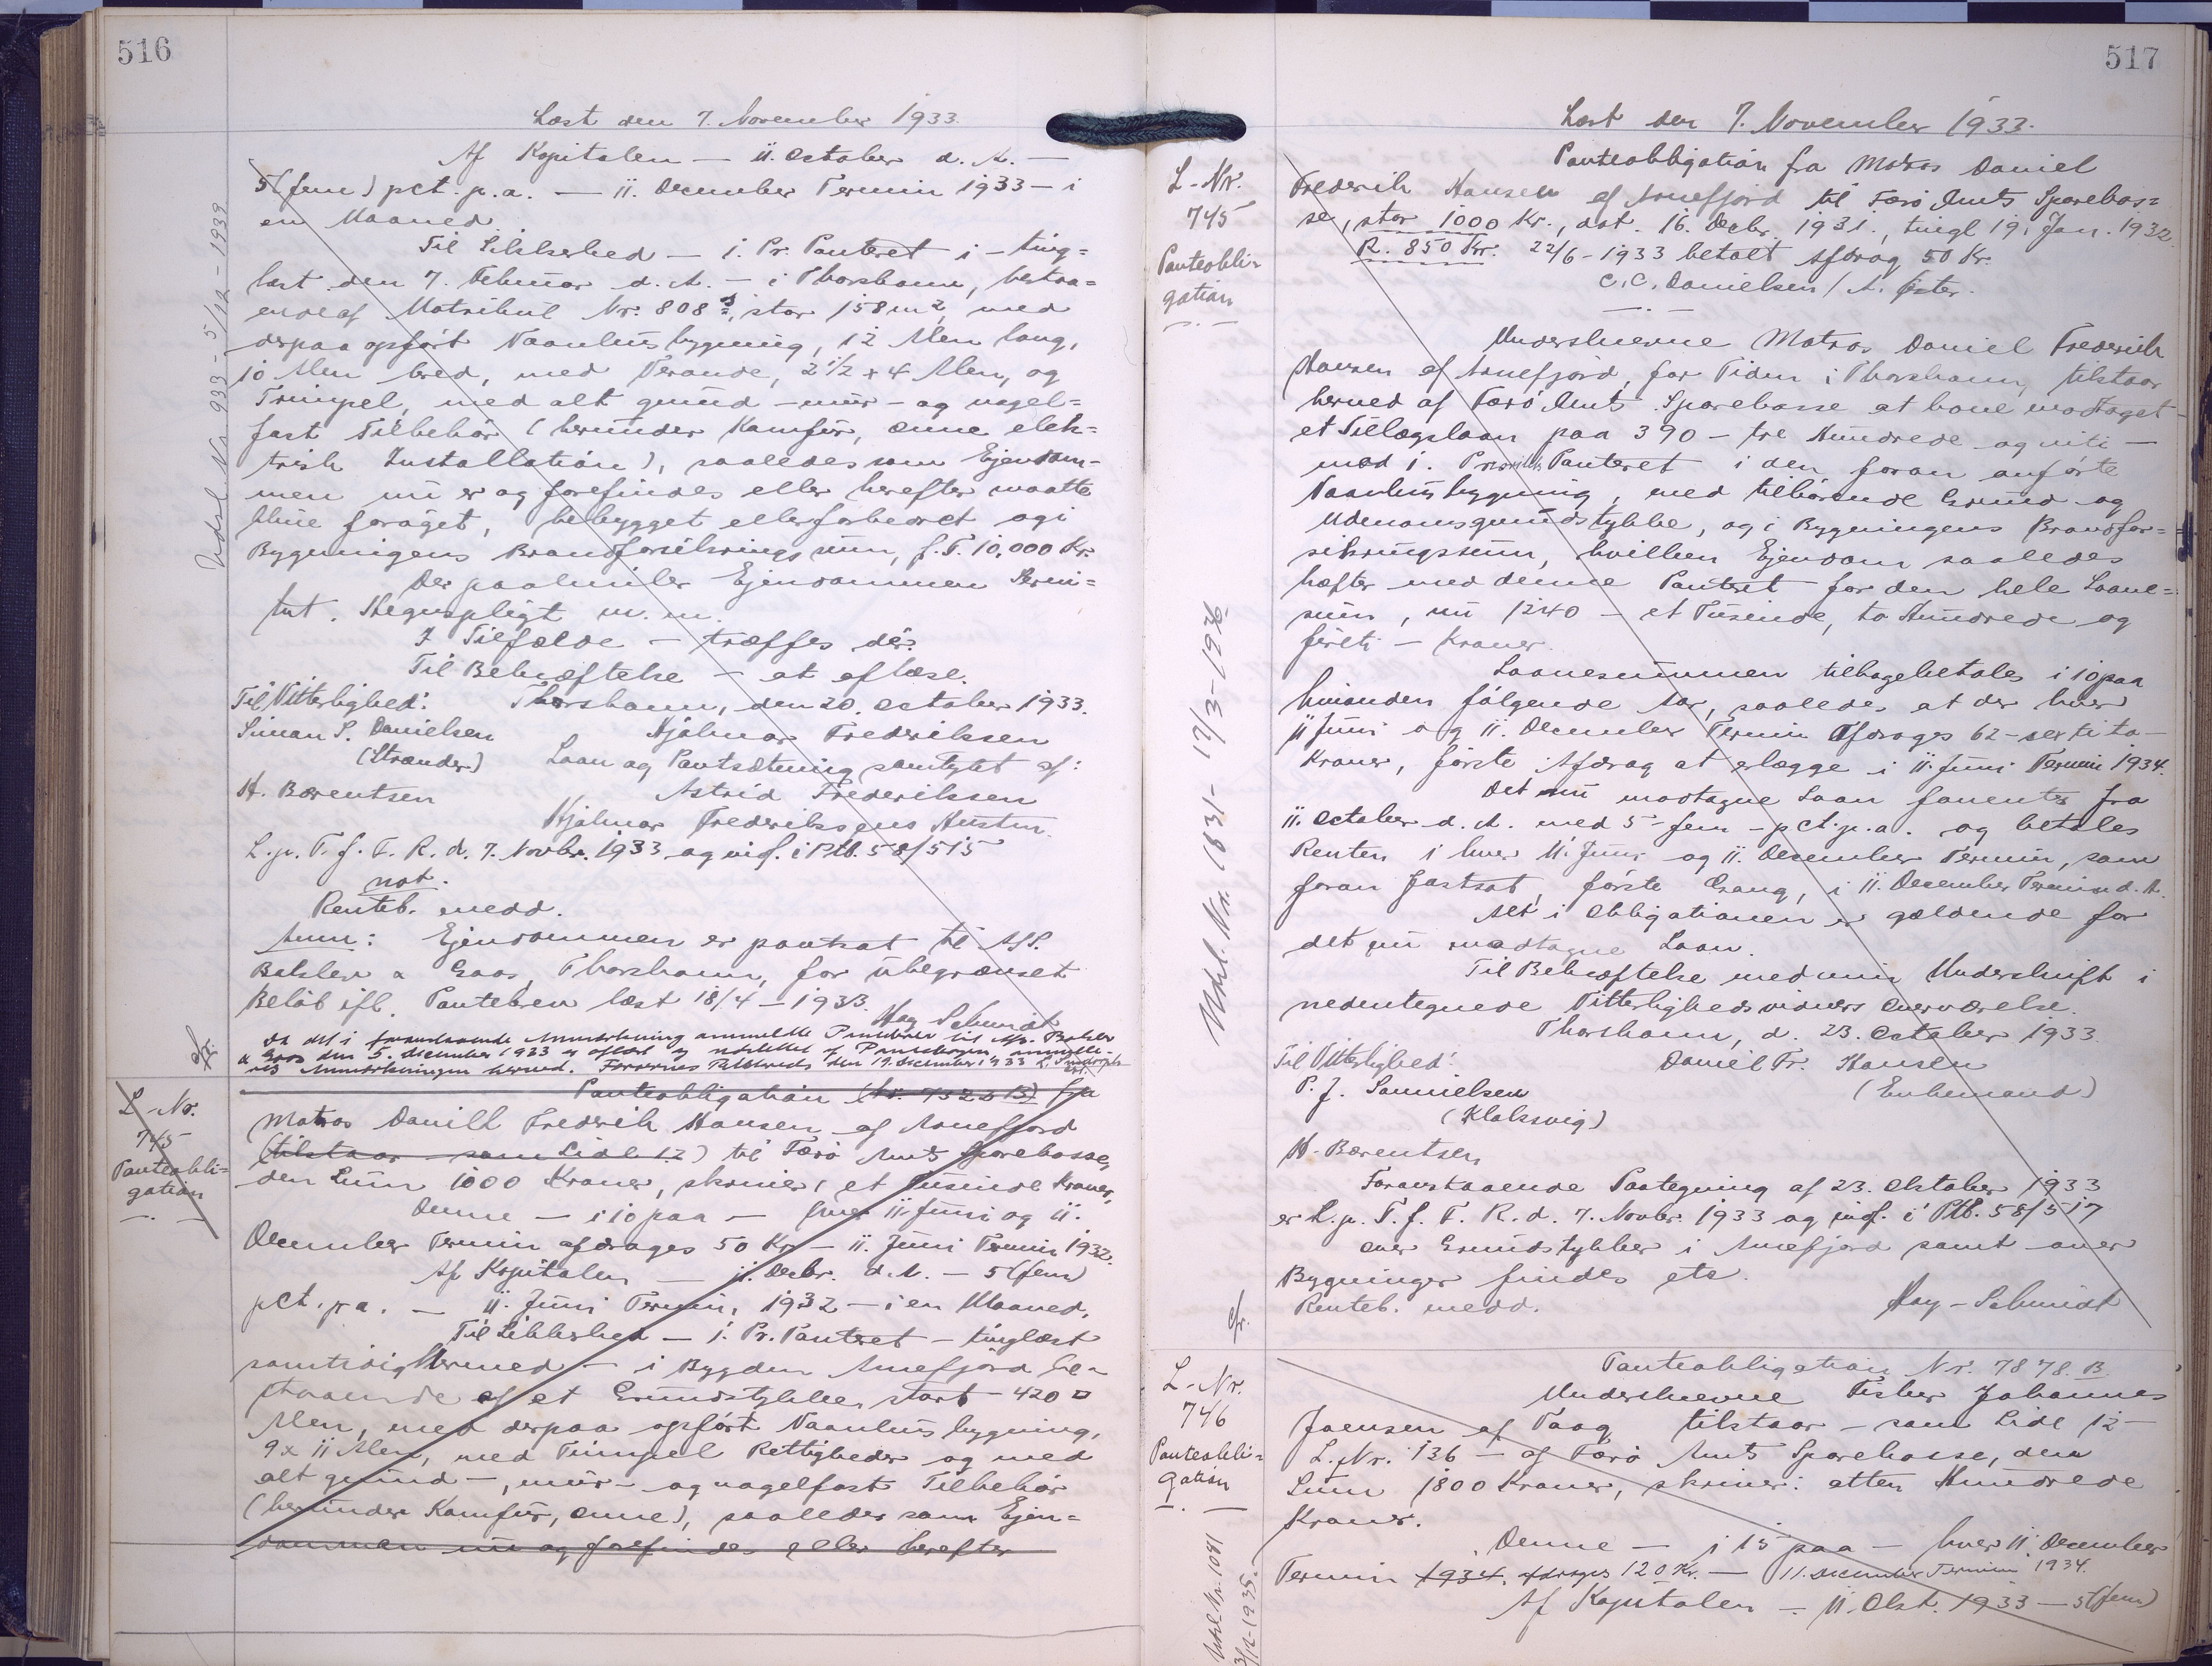 516
Læst den 7. November 1933.
Af Kapitalen — 11. October d. A. —
5 (fem) pct. p.a. — 11. December Termin 1933 — i
en Maaned
Til Sikkerhed — 1. Pr. Panteret i — ting=
læst den 7. Februar d. A. — i Thorshavn, bestaa=
ende af Matrikul Nr. 808 , stor 158 m2, med
derpaa opført Vaanhusbygning, 12 Alen lang,
10 Alen bred, med Verande, 2 1/2 x 4 Alen, og
Trimpel, med alt grund — mur — og nagel=
fast Tilbehør (herunder Kamfur, Ovne elek=
trisk Installation), saaledes som Ejendom=
men nu er og forefindes eller herefter maatte
blive forøget, bebygget eller forbedret og i
Bygningens Brandforsikringssum, f. T. 10,000 Kr.
Der paahviler Ejendommen Servi=
tut. Hegnspligt m. m.
I Tilfælde — træffes dér.
Til Bekræftelse — at aflæse.
Til Vitterlighed: Thorshavn, den 20. October 1933.
Simon S. Danielsen Hjalmar Frederiksen
(Strander) Laan og Pantsætning samtykt af:
H. Bærentsen Astrid Frederiksen
Hjalmar Frederiksens Hustru.
L. p. T. f. F. R. d. 7. Novbr. 1933 og indf. i Ptb. 58/515
not.
Renteb. medd.
Anm: Ejendommen er pantsat til A/S.
Balslev & Gaas, Thorshavn, for ubegrænset
Beløb ifl. Pantebrev læst 18/4 — 1933.
Hay Schmidt
Da det i foranstaaende Anmærkning ommeldte Pantebrev til A/S. Balslev
& Gaas den 5. december 1933 er aflæst og udslettet af Pantebogen, annulle=
res Anmærkningen herved. Færøernes Retskreds den 19. december 1933
Udsl. Nr. 933 — 5/12 — 1939
cfr.
L. Nr.
745
Panteobli=
gation
Panteobligation (Nr. 7323 B) fra
Matros Daniel Frederik Hansen af Arnefjord
(tilstaar — som Lidl 12) til Færø Amts Sparekasse,
den Sum 1000 Kroner, skriver, et Tusinde Kroner,
Denne — i 10 paa — hver 11. Juni og 11.
December Termin afdrages 50 Kr — 11. Juni Termin 1932.
Af Kapitalen — 11. Decbr. d. A. — 5 (fem)
pct. p.a. — 11. Juni Termin, 1932 — i en Maaned.
Til Sikkerhed — 1. Pr. Panteret — tinglæst
samtidig hermed — i Bygden Arnefjord be=
staaende af et Grundstykke, stort 420 □
Alen, med derpaa opført Vaanhusbygning,
9 x 11 Alen, med Trimpel Rettigheder og med
alt grund —, mur — og nagelfast Tilbehør
(herunder Kamfur, Ovne), saaledes som Ejen=
dommen nu og forefindes eller herefter
517
Læst den 7. November 1933.
L. Nr.
745
Panteobli=
gation
Panteobligation fra Matros Daniel
Frederik Hansen af Arnefjord til Færø Amts Sparekas=
se, stor 1000 Kr., dat. 16. Decbr. 1931., tingl 19. Jan. 1932.
R. 850 Kr. 22/6 - 1933 betalt Afdrag 50 Kr.
C. C. Danielsen / A. Øster.
Underskrevne Matros Daniel Frederik
Hansen af Arnefjord, for Tiden i Thorshavn, tilstaar
herved af Færø Amts Sparekasse at have modtaget
et Tillægslaan paa 390 — tre Hundrede og niti —
mod 1. Prioritets Panteret i den foran anførte
Vaanhusbygning, med tilhørende Grund og
Udenomsgrundstykke, og i Bygningens Brandfor=
sikringssum, hvilken Ejendom saaledes
hæfter med denne Panteret for den hele Laane=
sum, nu 1240 — et Tusinde, to Hundrede og
fireti — Kroner.
Laanesummen tilbagebetales i 10 paa
hinanden følgende Aar, saaledes at der hver
11 Juni og 11. December Termin Afdrages 62 — sexti to —
Kroner, første Afdrag at erlægge i 11. Juni Termin 1934.
Det nu modtagne Laan forrentes fra
11. October d. A. med 5 — fem — pct. p. a. og betales
Renten i hver 11. Juni og 11. Desember Termin, som
foran fastsat, første Gang, i 11. December Termin d. A.
Alt i Obligationen er gældende for
det nu modtagne Laan.
Til Bekræftelse med min Underskrift i
nedentegnede Vitterlighedsvidners Overværelse.
Thorshavn, d. 23. October 1933.
Til Vitterlighed: Daniel Fr. Hansen
P. J. Samuelsen (Enkemand)
(Klaksvig)
H. Bærentsen
Foranstaaende Paategning af 23. Oktober 1933
er L. p. T. f. F. R. d. 7. Novbr. 1933 og indf. i Ptb. 58/517
over Grundstykker i Arnefjord samt over
Bygninger findes etc.
Renteb. medd. Hay-Schmidt
cfr.
L. Nr.
746
Panteobli=
gation
Panteobligation Nr. 7878. B.
Underskrevne Fisker Johannes
Joensen af Vaag tilstaar — som Lidl 12 —
L. Nr. 136 — af Færø Amts Sparekasse, den
Sum 1800 Kroner, skriver: atten Hundrede
Kroner.
Denne — i 15 paa — hver 11. December
Termin 1934, afdrages 120 Kr. — 11. December Termin 1934.
Af Kapitalen — 11. Okt. 1933 — 5 (fem)
Udsl. Nr. 1041